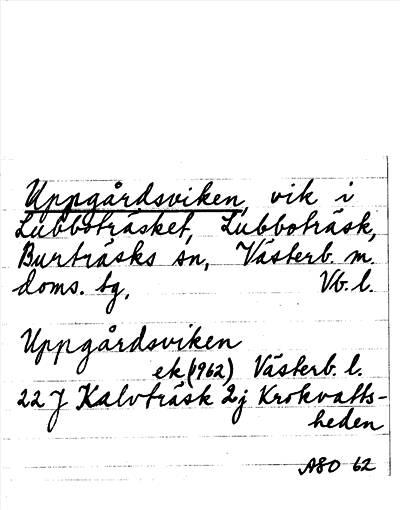 Uppgårdsviken, vik i
Lubboträsket, Lubboträsk,
Burträsks sn, Västerb. m.
doms. tg, Vb. l.
Uppgårdsviken
ek (1962) Västerb. l.
22 J Kalvträsk 2j Krokvatts-
heden
ASO 62